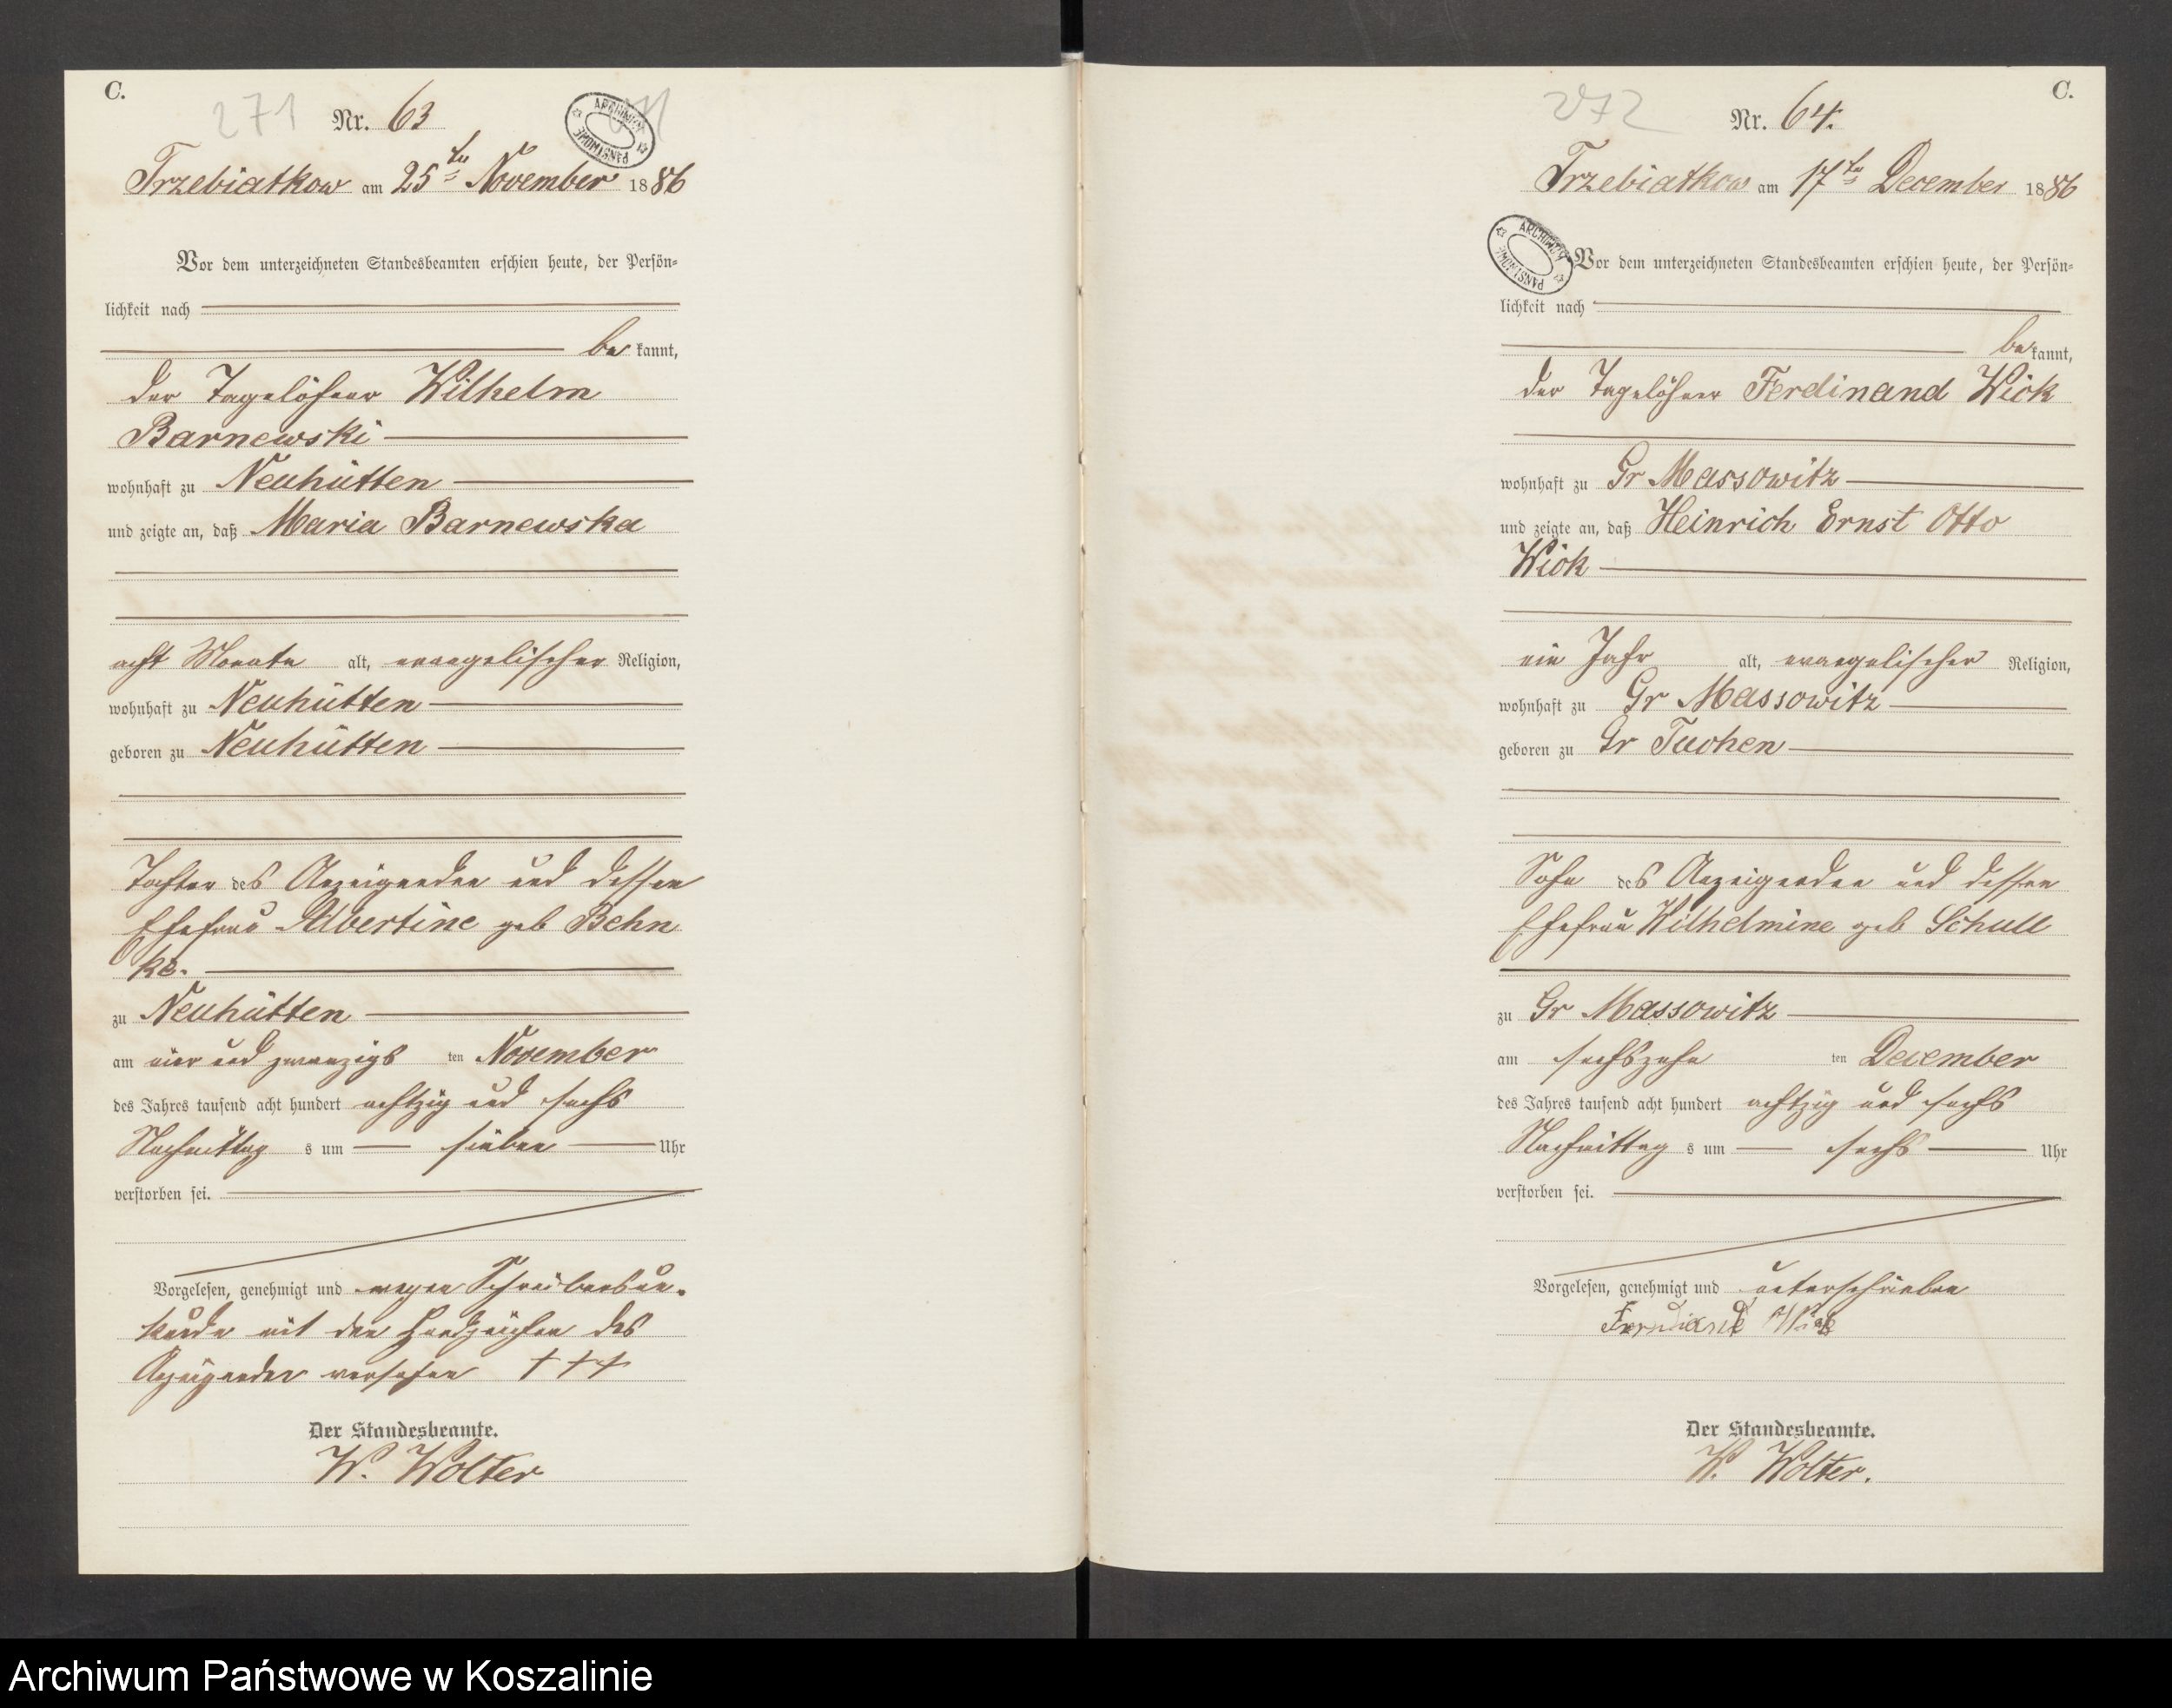 C.
271
Nr. 63
ARCHIWUM PAŃSTWOWE
Trzebiatkow am 25ten November 1886
Vor dem unterzeichneten Standesbeamten erschien heute, der Persön-
lichkeit nach
be kannt,
der Tagelöhner Wilhelm
Barnewski
wohnhaft zu Neuhütten
und zeigte an, daß Maria Barnewska
acht Monate alt, evangelischer Religion,
wohnhaft zu Neuhütten
geboren zu Neuhütten
Tochter des Anzeigenden und dessen
Ehefrau Albertine geb Behn
ke.
zu Neuhütten
am vier und zwanzigs ten November
des Jahres tausend acht hundert achtzig und sechs
Nachmittag s um sieben Uhr
verstorben sei.
Vorgelesen, genehmigt und wegen Schreibensun-
kunde mit den Handzeichen des
Anzeigenden versehen + + +
Der Standesbeamte.
W. Wolter
C.
272
Nr. 64.
Trzebiatkow am 17ten December 1886
ARCHIWUM PAŃSTWOWE
Vor dem unterzeichneten Standesbeamten erschien heute, der Persön-
lichkeit nach
be kannt,
der Tagelöhner Ferdinand Wick
wohnhaft zu Gr Massowitz
und zeigte an, daß Heinrich Ernst Otto
Wick
ein Jahr alt, evangelischer Religion,
wohnhaft zu Gr Massowitz
geboren zu Gr Tuchen
Sohn des Anzeigenden und dessen
Ehefrau Wilhelmine geb Schull
zu Gr Massowitz
am sechszehn ten December
des Jahres tausend acht hundert achtzig und sechs
Nachmittag s um sechs Uhr
verstorben sei.
Vorgelesen, genehmigt und unterschrieben
Ferdinand Wick
Der Standesbeamte.
W. Wolter.
Archiwum Państwowe w Koszalinie